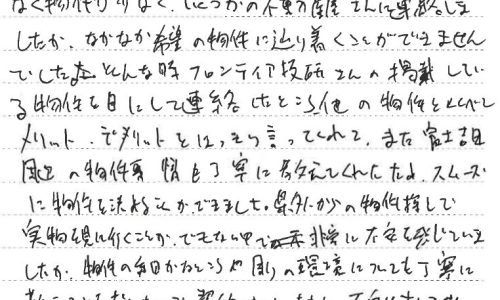 なく物件が少なく、いくつかの不動産屋さんに連絡しま
したが、なかなか希望の物件に辿り着くことができません
でした。そんな時フロンティア技研さんの掲載してい
る物件を目にして連絡したところ、他の物件と比べ
メリット、デメリットをはっきり言ってくれて、また富士吉田
周辺の物件事情も丁寧に教えてくれたため、スムーズ
に物件を決めることができました。県外からの物件探しで
実物を見に行くことができない中で非常に不安を感じていま
したが、物件の細かなところや周りの環境についても丁寧に